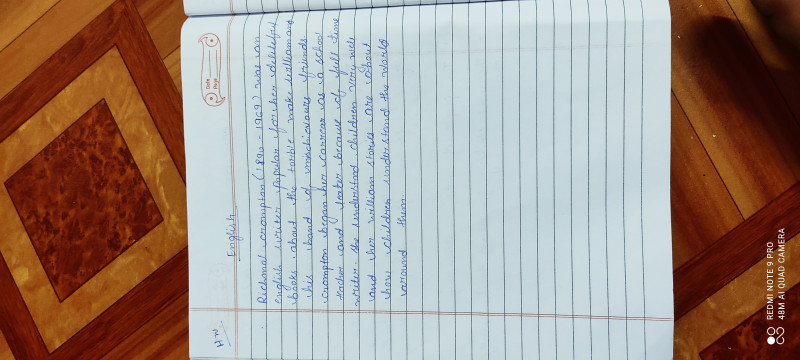 H.W
English
Date
Page
Ridmal crompton (1890-1969) was an
english writer popular for her delightful
books about the torble make william and
his band of mischiouours friends
crompton began her carrear as a school
teacher and leater because of full time
writer she understand children very nice
and her william stories are about
how children understand the world
around them.
REDMI NOTE 9 PRO
48M AI QUAD CAMERA